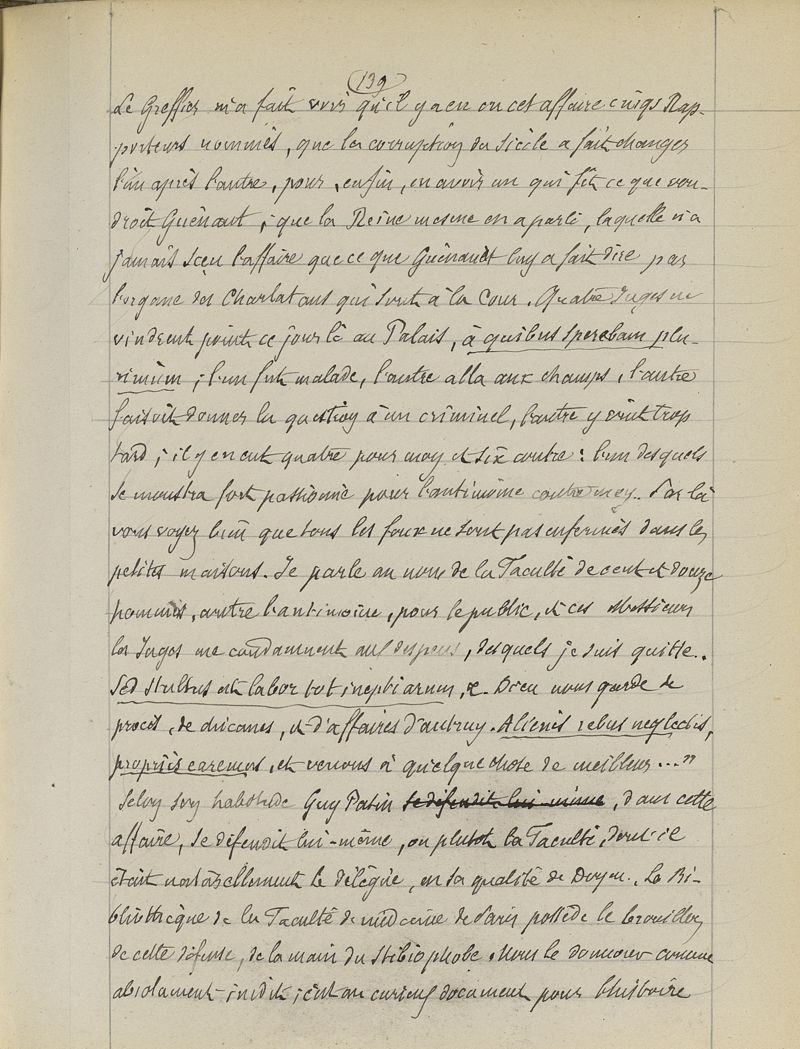 139
Le Greffier m'a fait voir qu'il y a eu en cet affaire cinqs Rap-
porteurs nommés, que la corruption du siècle a fait changer
l'un après l'autre, pour, enfin, en avoir un qui fît ce que vou-
droit Guénaut; que la Reine mesme en a parlé, laquelle n'a
jamais sceu l'affaire que ce que Guénault luy a fait dire par
l'organe des Charlatans qui sont à la Cour. Quatre Juges ne
vindrent point ce jour là au Palais, à quibus sperebam plu-
rimùm; l'un fut malade, l'autre alla aux champs, l'autre
faisoit donner la question à un criminel, l'autre y vint trop
tard; il y en eut quatre pour moy et six contre: l'un desquels
se monstra fort passionné pour l'antimoine contre moy. Par là
vous voyez bien que tous les foux ne sont pas enfermés dans les
petites maisons. Je parle au nom de la Faculté de cent et douze
hommes, contre l'antimoine, pour le public, et ces Messieurs
les Juges me condamnent aux despens, desquels je suis quitte.
Sed stultus est labor tot ineptiarum, &. Dieu nous garde de
procès, de chicanes, et d'affaires d'autruy. Alienis rebus neglectis,
propriis caremus, et venons à quelque chose de meilleur..."
Selon son habitude Guy Patin se défendit lui-même, dans cette
affaire, se défendit lui-même, ou plutôt la Faculté, dont il
était naturellement le délégué, en sa qualité de Doyen. La Bi-
bliothèque de la Faculté de médecine de Paris possède le brouillon
de cette défense, de la main du stibiophobe. Nous le donnons comme
absolument inédit; c'est un curieux document pour l'histoire